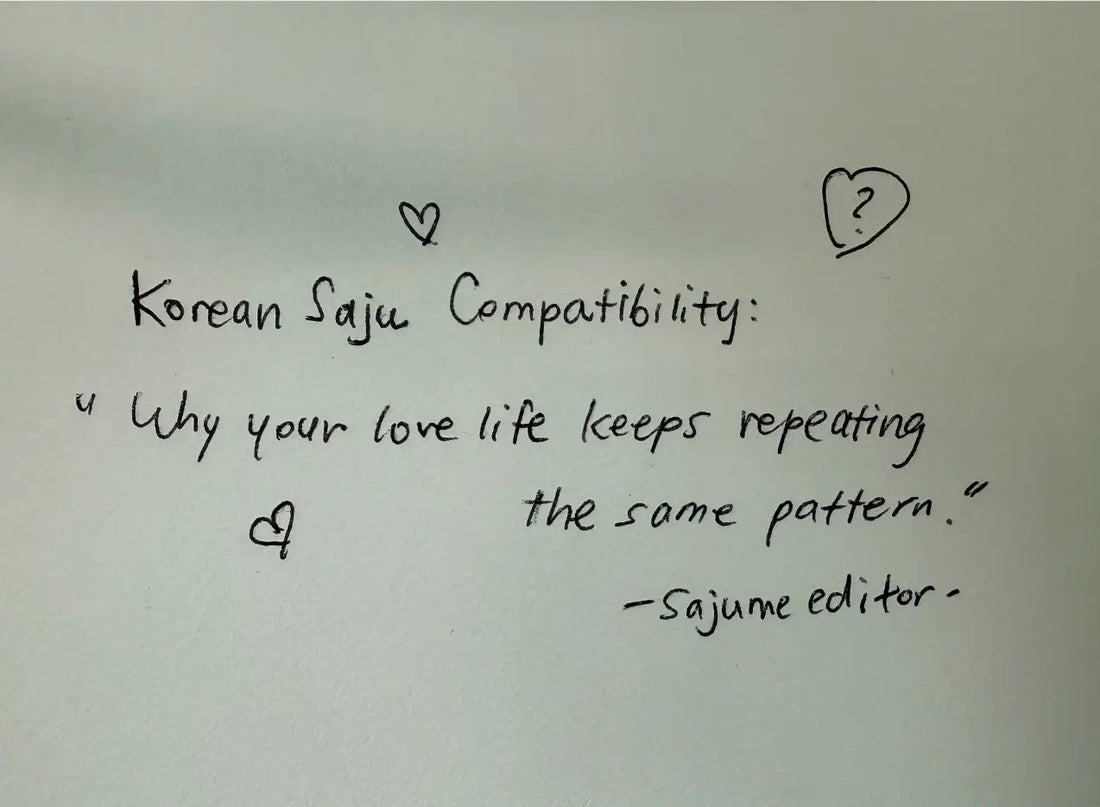 ?
Korean Saju Compatibility:
" Why your love life keeps repeating
the same pattern."
-Sajume editor-